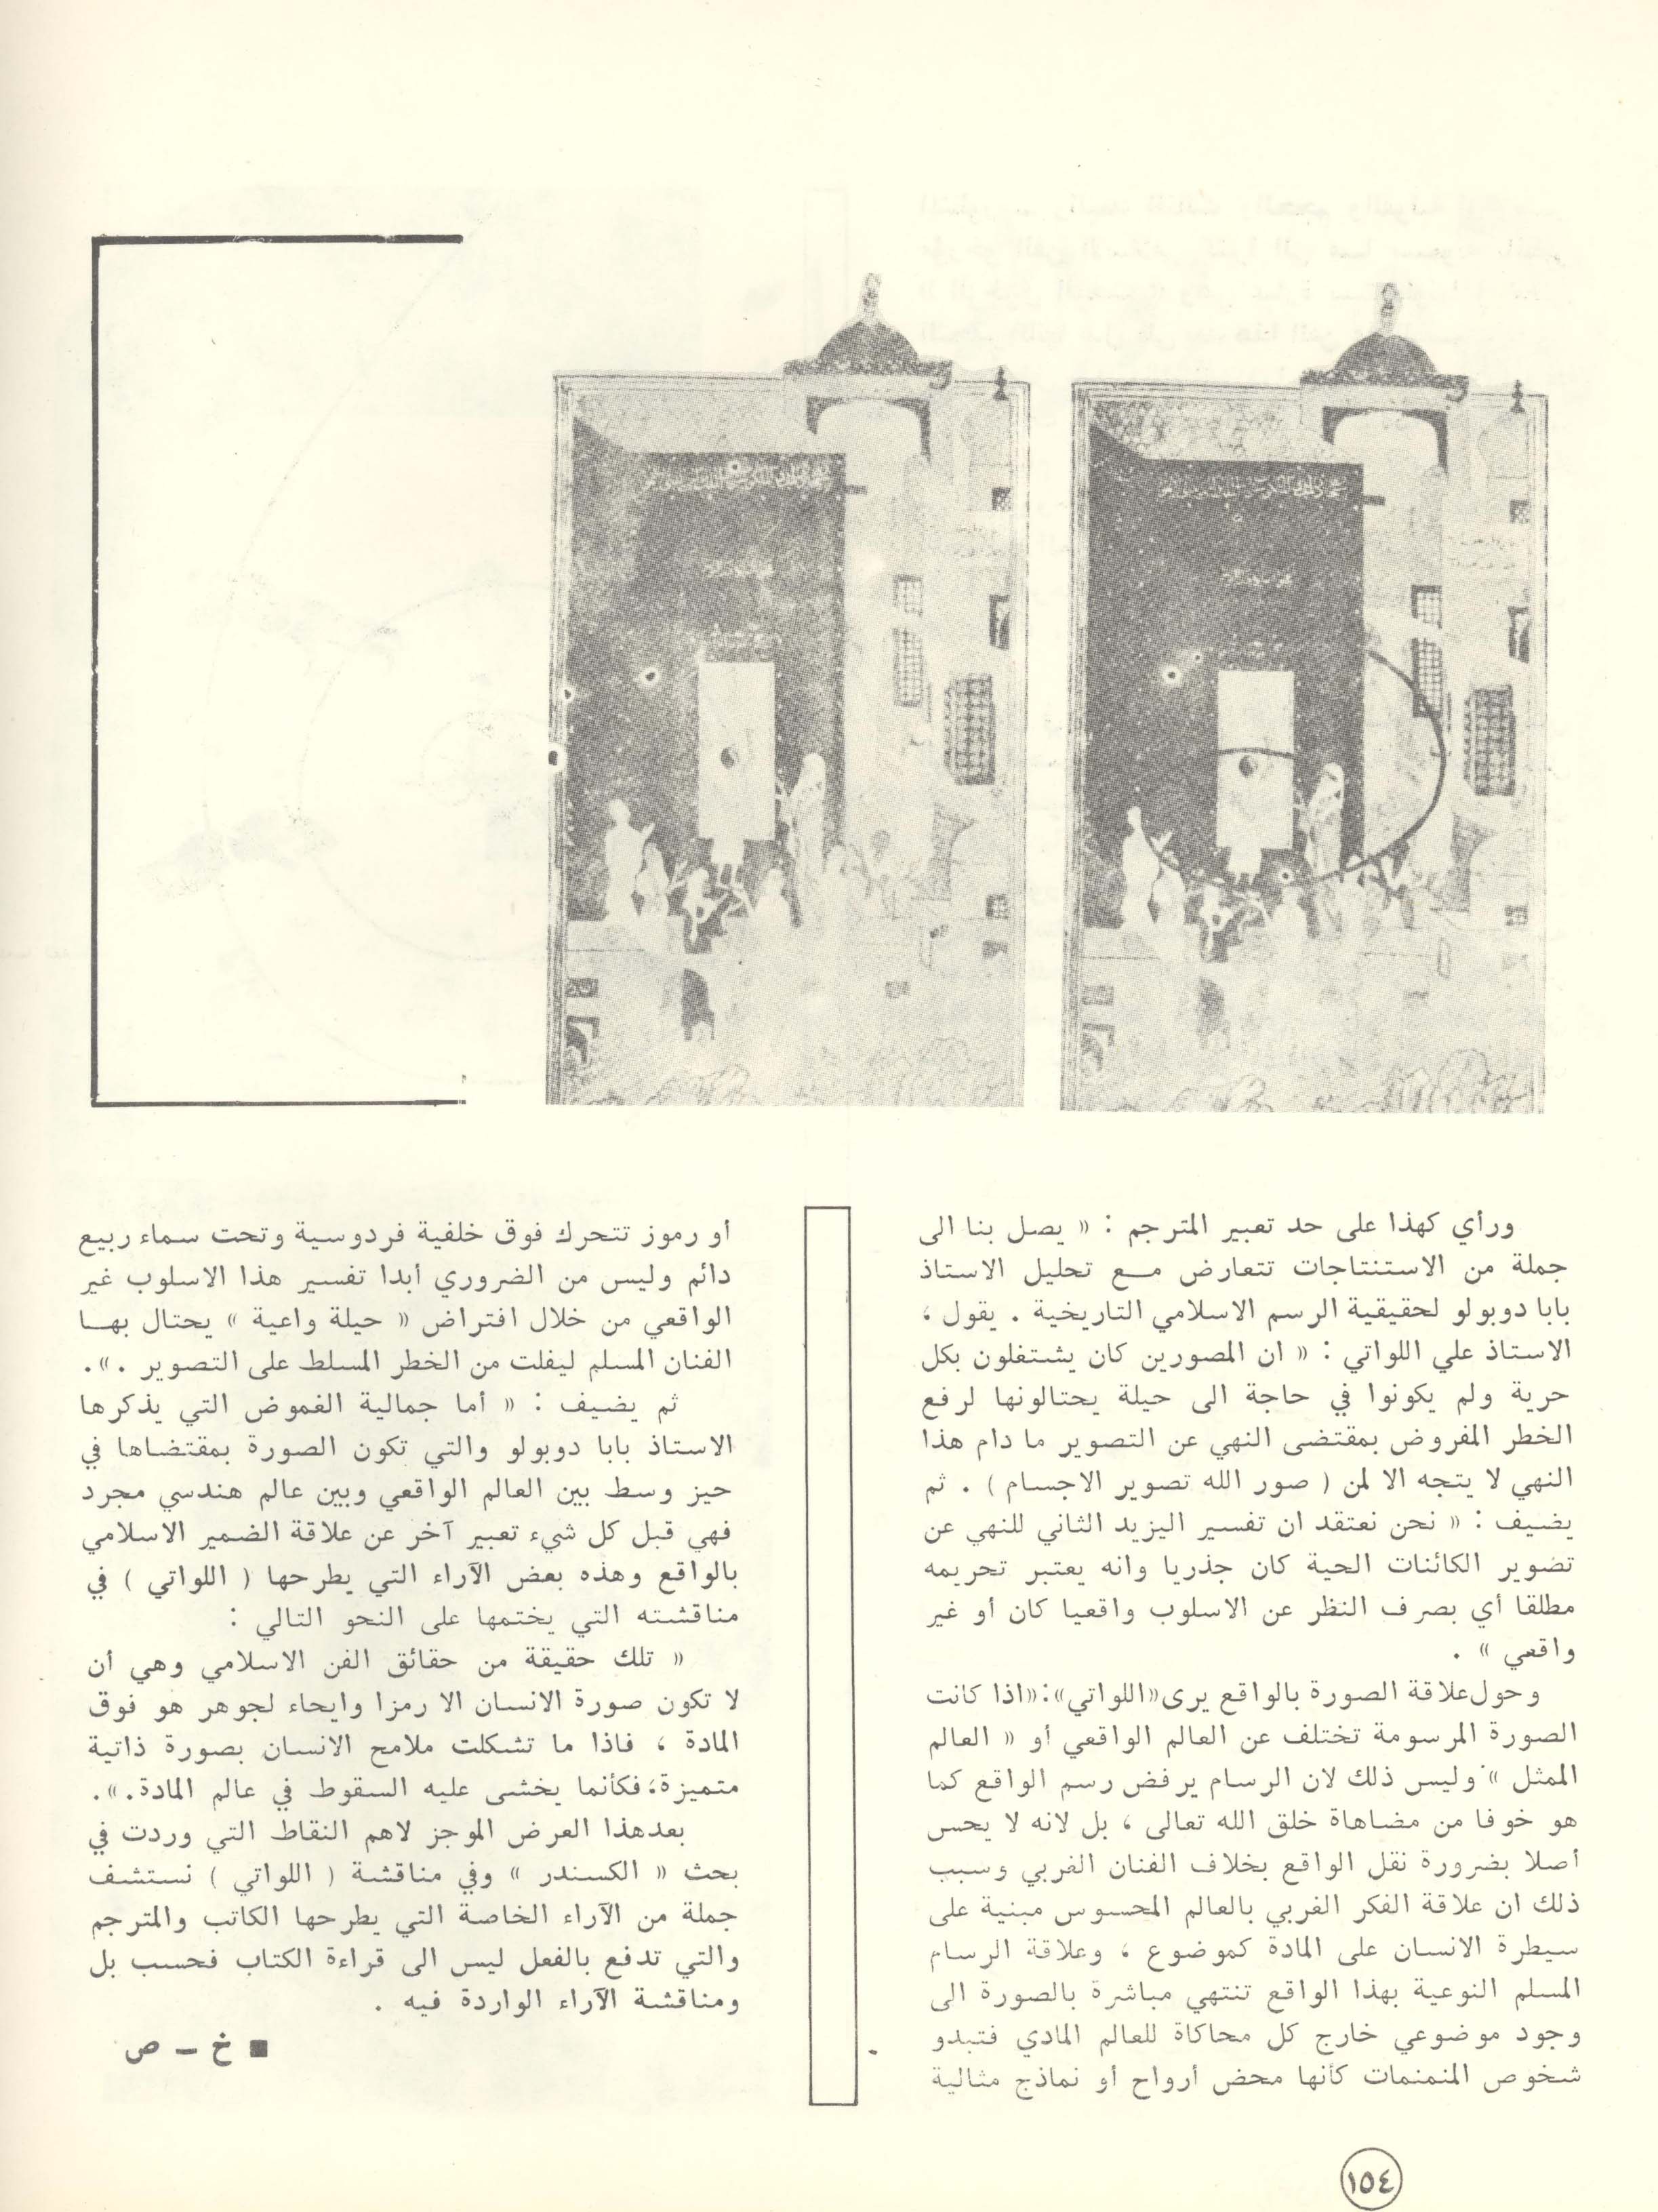 ورأي كهذا على حد تعبير المترجم : « يصل بنا الى
جملة من الاستنتاجات تتعارض مـع تحليل الاستاذ
بابا دوبولو لحقيقية الرسم الاسلامي التاريخية . يقول ،
الاستاذ علي اللواتي : « ان المصورين كان يشتغلون بكل
حرية ولم يكونوا في حاجة الى حيلة يحتالونها لرفع
الخطر المفروض بمقتضى النهي عن التصوير ما دام هذا
النهي لا يتجه الا لمن ( صور الله تصوير الاجسام ) . ثم
يضيف : « نحن نعتقد ان تفسير اليزيد الثاني للنهي عن
تصوير الكائنات الحية كان جذريا وانه يعتبر تحريمه
مطلقا أي بصرف النظر عن الاسلوب واقعيا كان أو غير
واقعي » .
وحول علاقة الصورة بالواقع يرى «اللواتي»: «اذا كانت
الصورة المرسومة تختلف عن العالم الواقعي أو « العالم
الممثل » وليس ذلك لان الرسام يرفض رسم الواقع كما
هو خوفا من مضاهاة خلق الله تعالى ، بل لانه لا يحس
أصلا بضرورة نقل الواقع بخلاف الفنان الغربي وسبب
ذلك ان علاقة الفكر الغربي بالعالم المحسوس مبنية على
سيطرة الانسان على المادة كموضوع ، وعلاقة الرسام
المسلم النوعية بهذا الواقع تنتهي مباشرة بالصورة الى
وجود موضوعي خارج كل محاكاة للعالم المادي فتبدو
شخوص المنمنمات كأنها محض أرواح أو نماذج مثالية
أو رموز تتحرك فوق خلفية فردوسية وتحت سماء ربيع
دائم وليس من الضروري أبدا تفسير هذا الاسلوب غير
الواقعي من خلال افتراض « حيلة واعية » يحتال بهـا
الفنان المسلم ليفلت من الخطر المسلط على التصوير .».
ثم يضيف : « أما جمالية الغموض التي يذكرها
الاستاذ بابا دوبولو والتي تكون الصورة بمقتضاها في
حيز وسط بين العالم الواقعي وبين عالم هندسي مجرد
فهي قبل كل شيء تعبير آخر عن علاقة الضمير الاسلامي
بالواقع وهذه بعض الآراء التي يطرحها ( اللواتي ) في
مناقشته التي يختمها على النحو التالي :
« تلك حقيقة من حقائق الفن الاسلامي وهي أن
لا تكون صورة الانسان الا رمزا وايحاء لجوهر هو فوق
المادة ، فاذا ما تشكلت ملامح الانسان بصورة ذاتية
متميزة، فكأنما يخشى عليه السقوط في عالم المادة.».
بعد هذا العرض الموجز لاهم النقاط التي وردت في
بحث « الكسندر » وفي مناقشة ( اللواتي ) نستشف
جملة من الآراء الخاصة التي يطرحها الكاتب والمترجم
والتي تدفع بالفعل ليس الى قراءة الكتاب فحسب بل
ومناقشة الآراء الواردة فيه .
■ خ – ص
١٥٤